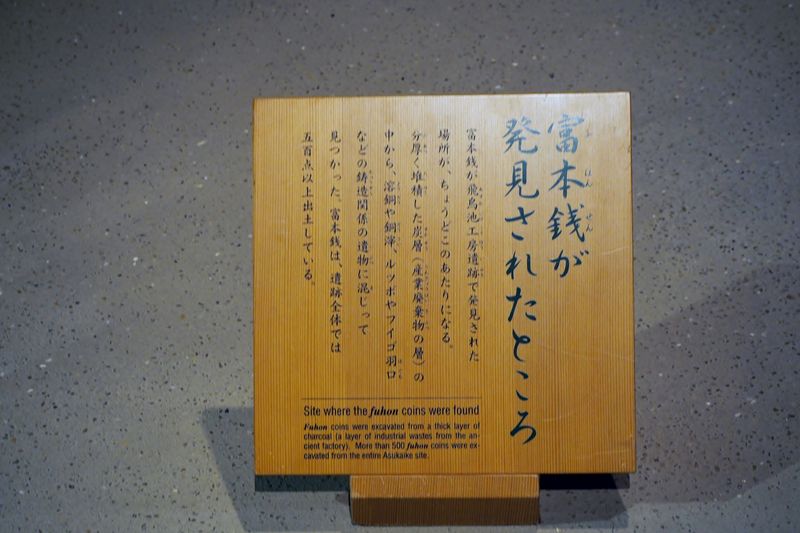 富本銭が
発見されたところ
富本銭が飛鳥池工房遺跡で発見された
場所が、ちょうどこのあたりになる。
分厚く堆積した炭層(産業廃棄物の層)の
中から、溶銅や銅滓、ルツボやフイゴ羽口
などの鋳造関係の遺物に混じって
見つかった。富本銭は、遺跡全体では
五百点以上出土している。
Site where the fuhon coins were found
Fuhon coins were excavated from a thick layer of
charcoal (a layer of industrial wastes from the an-
cient factory). More than 500 fuhon coins were ex-
cavated from the entire Asukaike site.